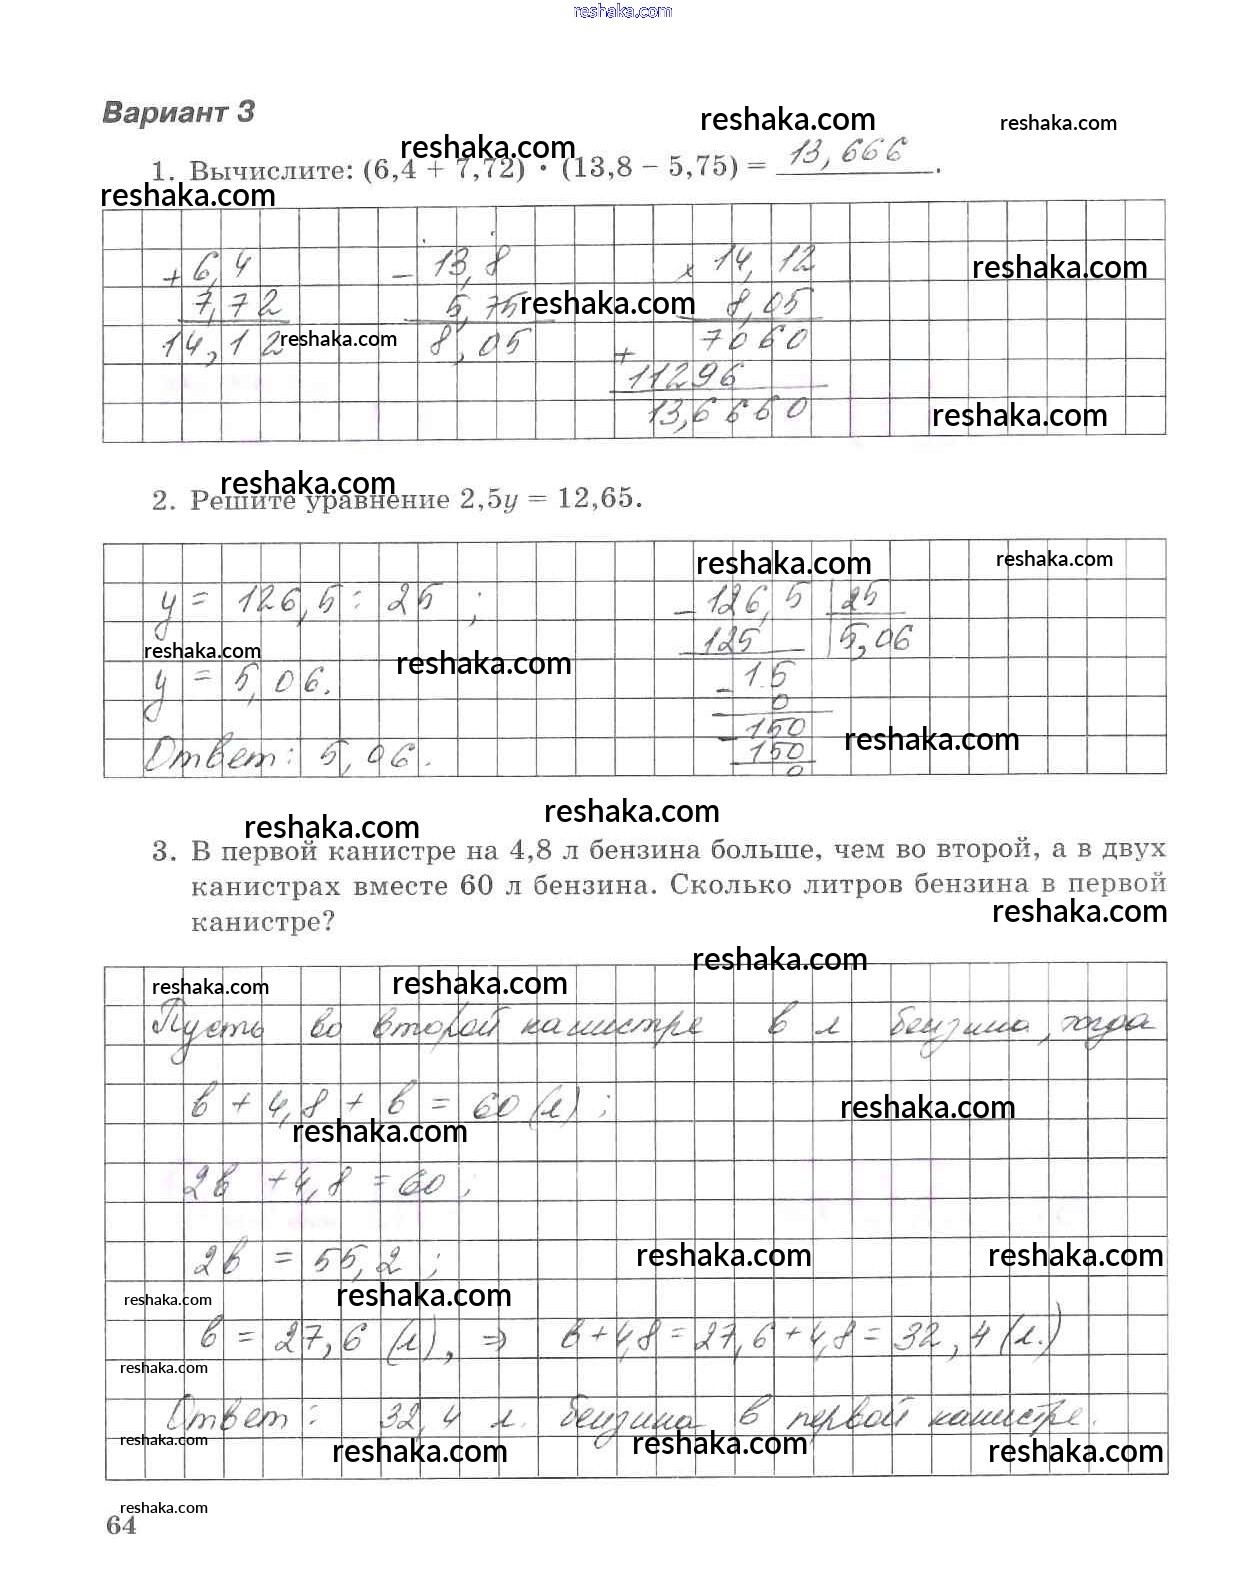 reshaka.com
Вариант 3
reshaka.com
reshaka.com
reshaka.com
1. Вычислите: (6,4 + 7,72) · (13,8 − 5,75) = 13,666.
reshaka.com
+ 6,4 − 13,8 × 14,12
reshaka.com
7,72 5,75 8,05
reshaka.com
14,12 8,05 7060
reshaka.com
+ 11296
13,6660
reshaka.com
reshaka.com
2. Решите уравнение 2,5y = 12,65.
reshaka.com
reshaka.com
y = 126,5 : 25 ; − 126,5 25
125 5,06
reshaka.com
reshaka.com
y = 5,06. − 15
0
− 150
reshaka.com
Ответ: 5,06. 150
0
reshaka.com
reshaka.com
3. В первой канистре на 4,8 л бензина больше, чем во второй, а в двух
канистрах вместе 60 л бензина. Сколько литров бензина в первой
канистре?
reshaka.com
reshaka.com
reshaka.com
reshaka.com
Пусть во второй канистре в л бензина, тогда
в + 4,8 + в = 60 (л) ;
reshaka.com
reshaka.com
2в + 4,8 = 60 ;
2в = 55,2 ;
reshaka.com
reshaka.com
reshaka.com
reshaka.com
в = 27,6 (л), ⇒ в + 4,8 = 27,6 + 4,8 = 32,4 (л.)
reshaka.com
Ответ: 32,4 л. бензина в первой канистре.
reshaka.com
reshaka.com
reshaka.com
reshaka.com
reshaka.com
64